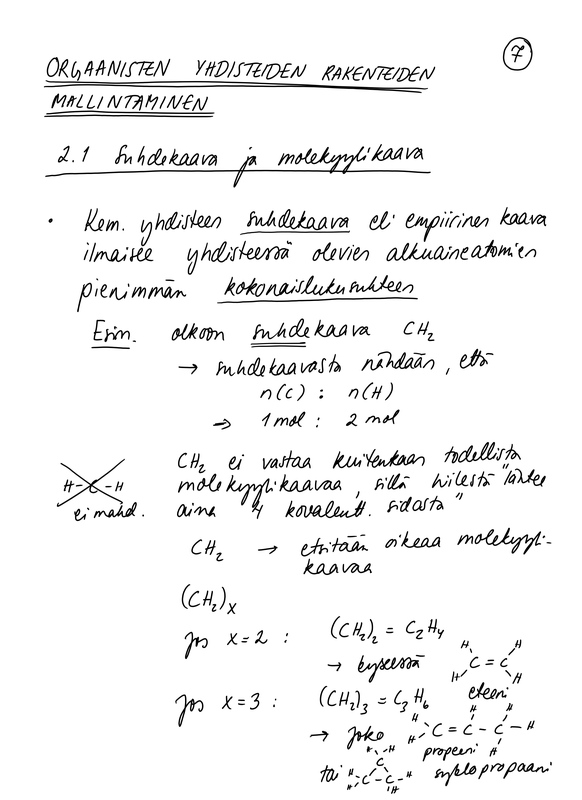 7
ORGAANISTEN YHDISTEIDEN RAKENTEIDEN
MALLINTAMINEN
2.1 Suhdekaava ja molekyylikaava
• Kem. yhdisteen suhdekaava eli empiirinen kaava
ilmaisee yhdisteessä olevien alkuaineatomien
pienimmän kokonaislukusuhteen
Esim. olkoon suhdekaava CH₂
→ suhdekaavasta nähdään, että
n(C) : n(H)
⇒ 1 mol : 2 mol
CH₂ ei vastaa kuitenkaan todellista
H-C-H molekyylikaavaa, sillä hiilestä "lähtee
ei mahd. aina 4 kovalentt. sidosta"
CH₂ → etsitään oikeaa molekyyli-
kaavaa
(CH₂)ₓ
Jos x=2 : (CH₂)₂ = C₂H₄
→ kyseessä
H H C=C H H
eteeni
Jos x=3 : (CH₂)₃ = C₃H₆
→ joko H H C=C-C-H H H H
propeeni
tai H H C H C C H H H syklopropaani